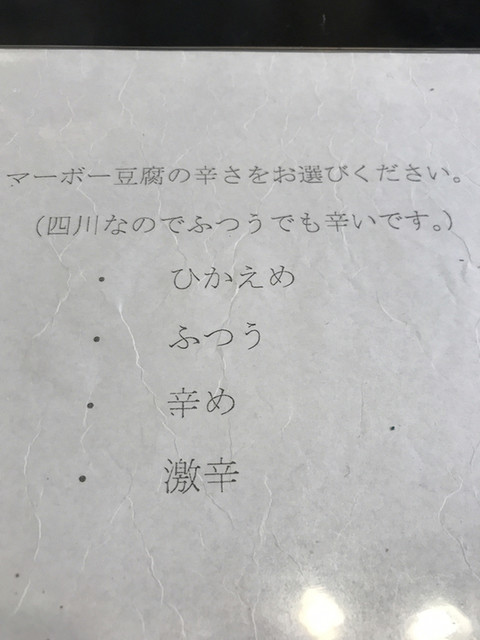 マーボー豆腐の辛さをお選びください。
（四川なのでふつうでも辛いです。）
・ ひかえめ
・ ふつう
・ 辛め
・ 激辛